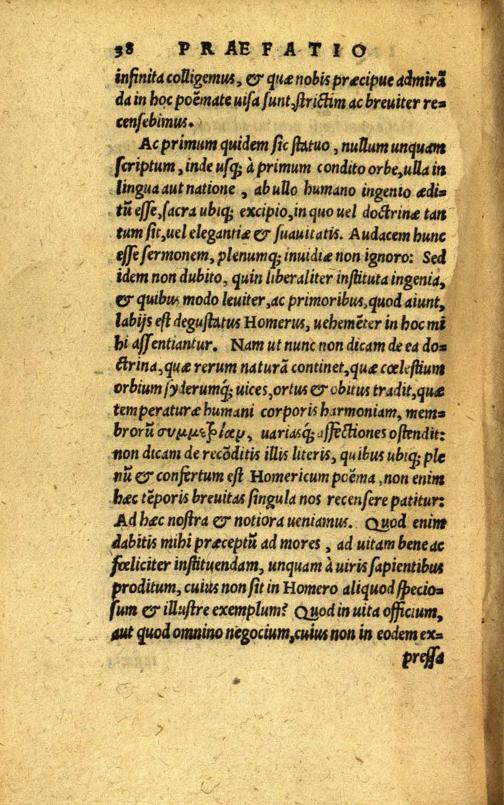 38 PRAEFATIO
infinita colligemus, & quæ nobis præcipue admirā
da in hoc poëmate uisa sunt, strictim ac breuiter re=
censebimus.
Ac primum quidem sic statuo, nullum unquam
scriptum, inde usq; à primum condito orbe, ulla in
lingua aut natione, ab ullo humano ingento ædi=
tū esse, sacra ubiq; excipio, in quo uel doctrinæ tan
tum sit, uel elegantiæ & suauitatis. Audacem hunc
esse sermonem, plenumq; inuidiæ non ignoro: Sed
idem non dubito, quin liberaliter instituta ingenia,
& quibus modo leuiter, ac primoribus, quod aiunt,
labijs est degustatus Homerus, uehemēter in hoc mi
hi assentiantur. Nam ut nunc non dicam de ea do=
ctrina, quæ rerum naturā continet, quæ cœlestium
orbium syderumq́; uices, ortus & obitus tradit, quæ
temperaturæ humani corporis harmoniam, mem=
brorū συμμετρίαν, uariasq; affectiones ostendit:
non dicam de recōditis illis literis, quibus ubiq; ple
nū & confertum est Homericum poëma, non enim
hæc tēporis breuitas singula nos recensere patitur:
Ad hæc nostra & notiora ueniamus. Quod enim
dabitis mihi præceptū ad mores, ad uitam bene ac
fœliciter instituendam, unquam à uiris sapientibus
proditum, cuius non sit in Homero aliquod specio=
sum & illustre exemplum? Quod in uita officium,
aut quod omnino negocium, cuius non in eodem ex=
pressa